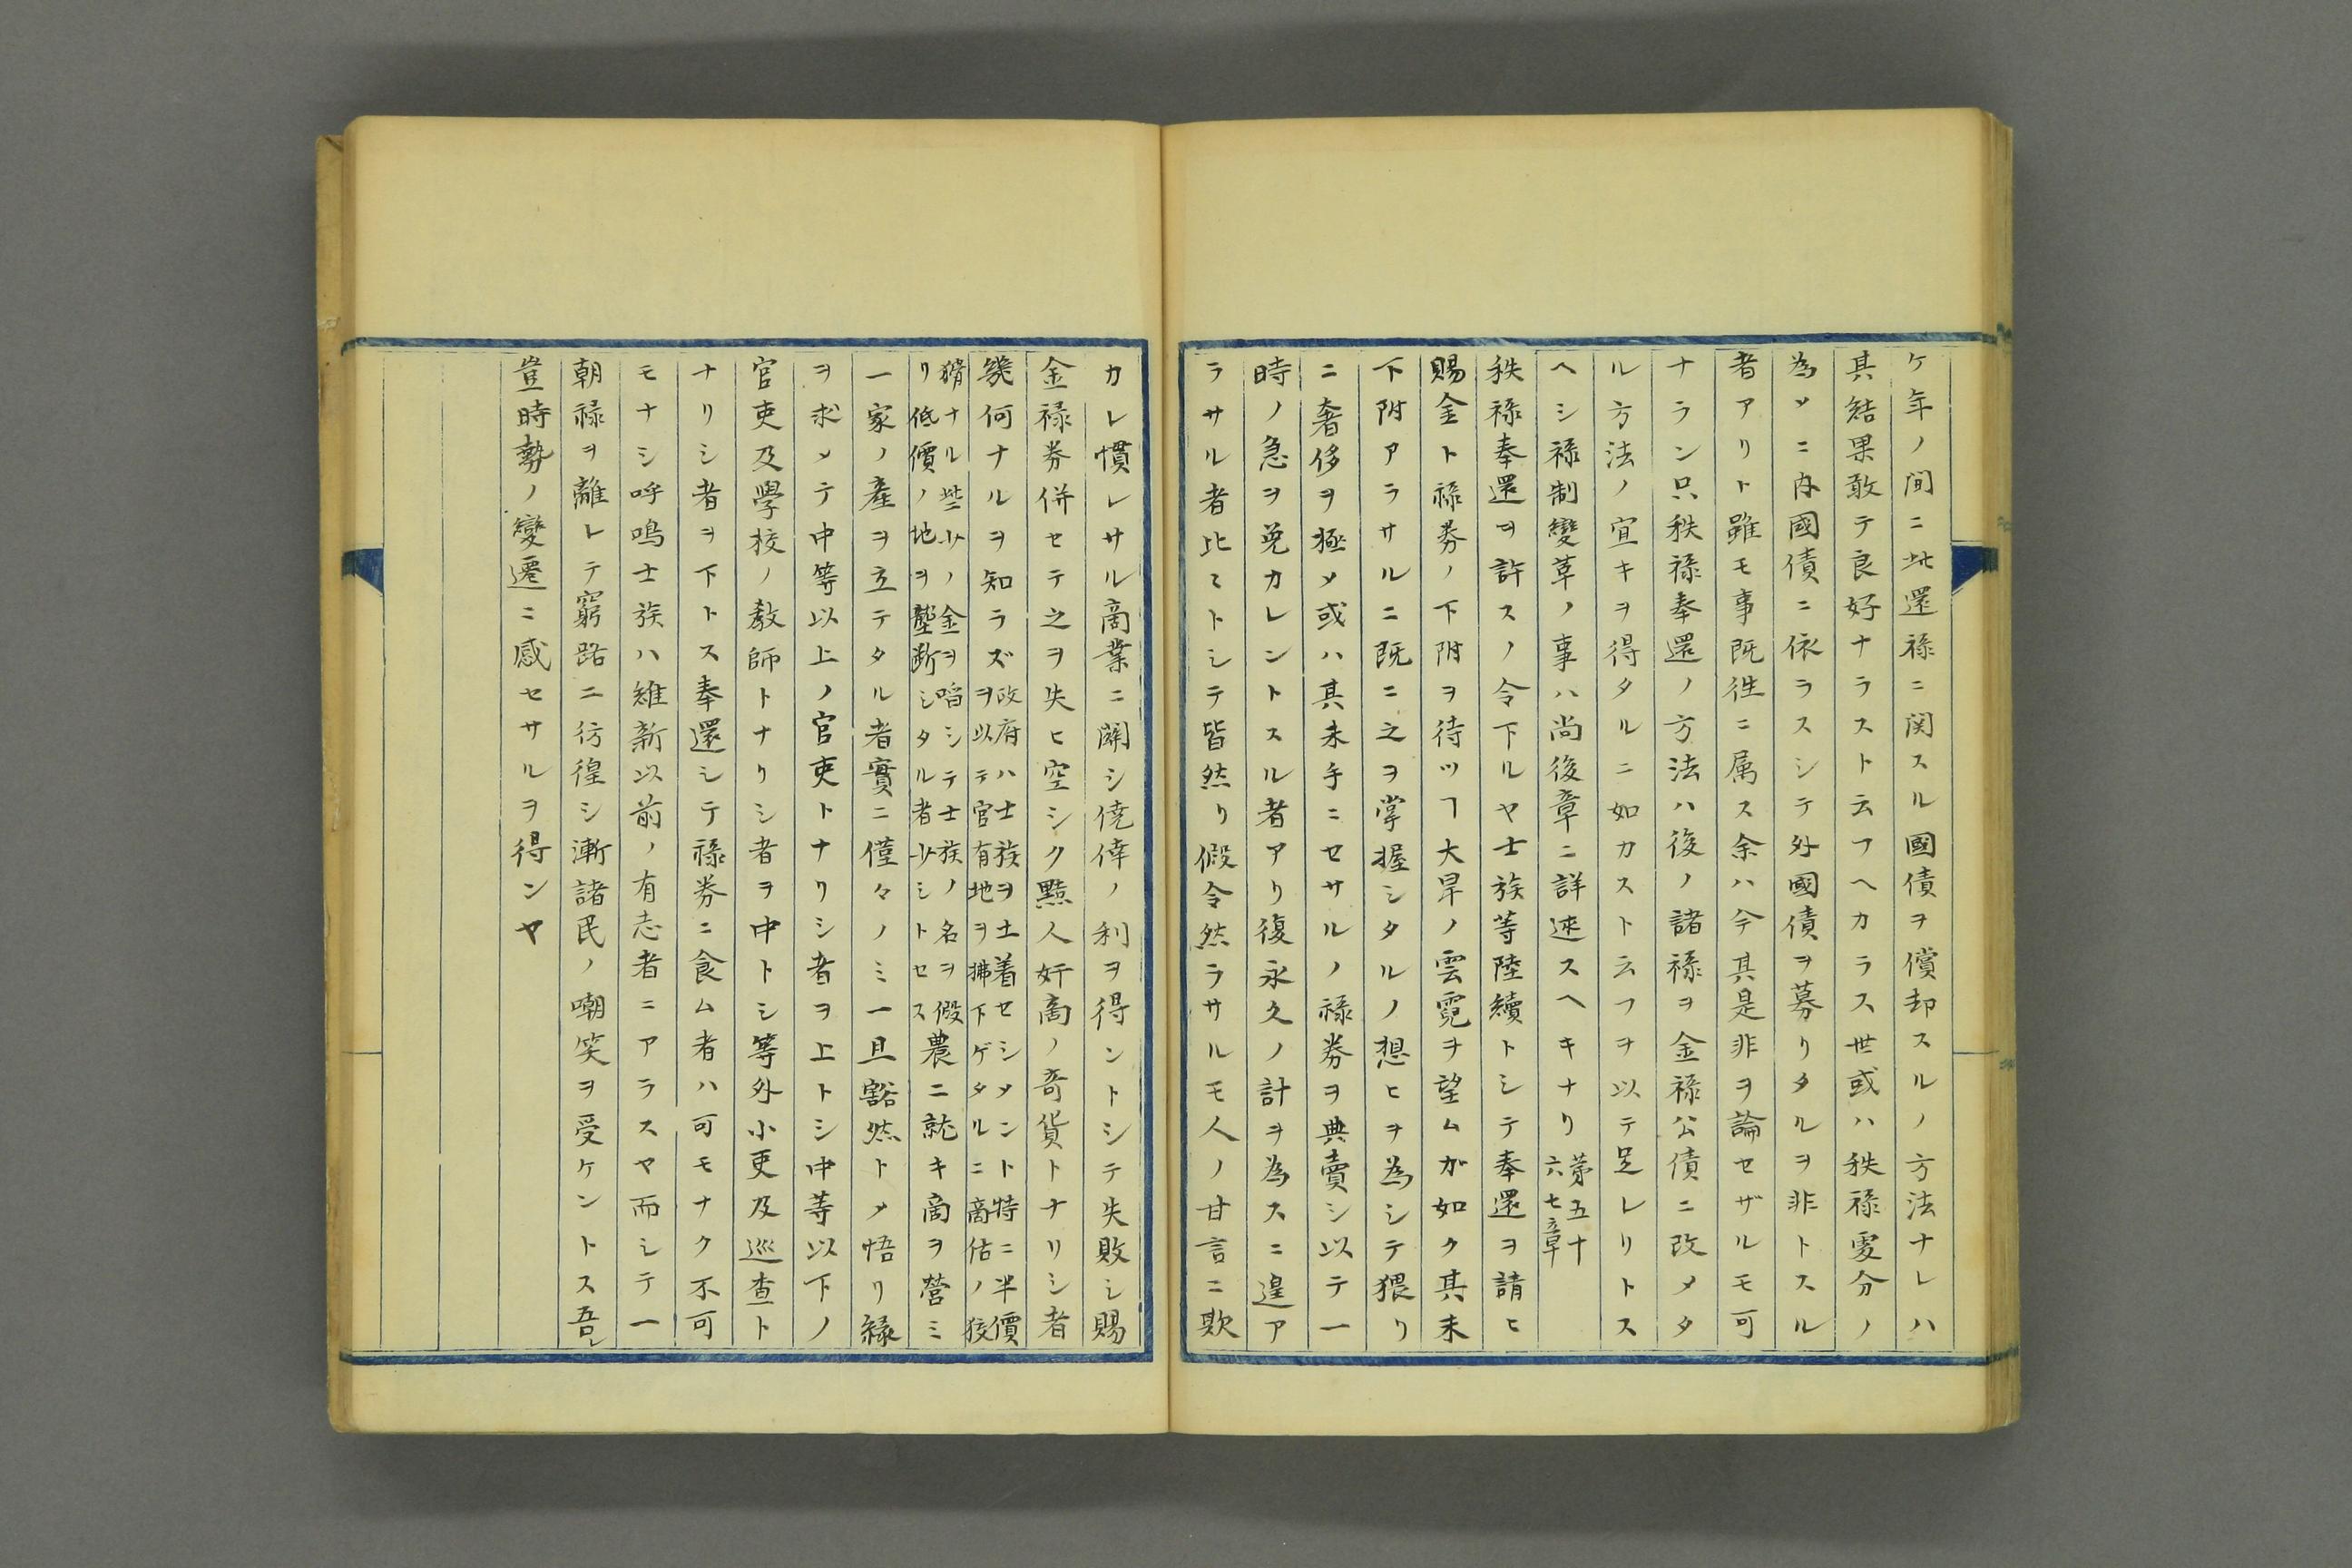 ケ年ノ間ニ此還禄ニ関スル國債ヲ償却スルノ方法ナレハ
其結果敢テ良好ナラスト云フヘカラス世或ハ秩禄處分ノ
為メニ内國債ニ依ラスシテ外國債ヲ募リタルヲ非トスル
者アリト雖モ事既徃ニ属ス余ハ今其是非ヲ論セザルモ可
ナラン只秩禄奉還ノ方法ハ後ノ諸禄ヲ金禄公債ニ改メタ
ル方法ノ宜キヲ得タルニ如カスト云フヲ以テ足レリトス
ヘシ禄制變革ノ事ハ尚後章ニ詳述スヘキナリ第五十
六七章
秩禄奉還ヲ許スノ令下ルヤ士族等陸續トシテ奉還ヲ請ヒ
賜金ト禄券ノ下附ヲ待ツヿ大旱ノ雲霓ヲ望ムガ如ク其未
下附アラサルニ既ニ之ヲ掌握シタルノ想ヒヲ為シテ猥リ
ニ奢侈ヲ極メ或ハ其未手ニセサルノ禄券ヲ典賣シ以テ一
時ノ急ヲ免カレントスル者アリ復永久ノ計ヲ為スニ遑ア
ラサル者比〻トシテ皆然リ假令然ラサルモ人ノ甘言ニ欺
カレ慣レサル商業ニ關シ僥倖ノ利ヲ得ントシテ失敗シ賜
金禄券併セテ之ヲ失ヒ空シク黠人奸商ノ奇貨トナリシ者
幾何ナルヲ知ラズ政府ハ士族ヲ土着セシメント特ニ半價
ヲ以テ官有地ヲ拂下ゲタルニ商估ノ狡
猾ナル些少ノ金ヲ啗シテ士族ノ名ヲ假
リ低價ノ地ヲ壟断シタル者少シトセス農ニ就キ商ヲ營ミ
一家ノ産ヲ立テタル者實ニ僅々ノミ一旦豁然トメ悟リ縁
ヲ求メテ中等以上ノ官吏トナリシ者ヲ上トシ中等以下ノ
官吏及學校ノ教師トナリシ者ヲ中トシ等外小吏及巡査ト
ナリシ者ヲ下トス奉還シテ禄券ニ食ム者ハ可モナク不可
モナシ呼鳴士族ハ維新以前ノ有志者ニアラスヤ而シテ一
朝禄ヲ離レテ窮路ニ彷徨シ漸諸民ノ嘲笑ヲ受ケントス吾レ
豈時勢ノ變遷ニ感セサルヲ得ンヤ